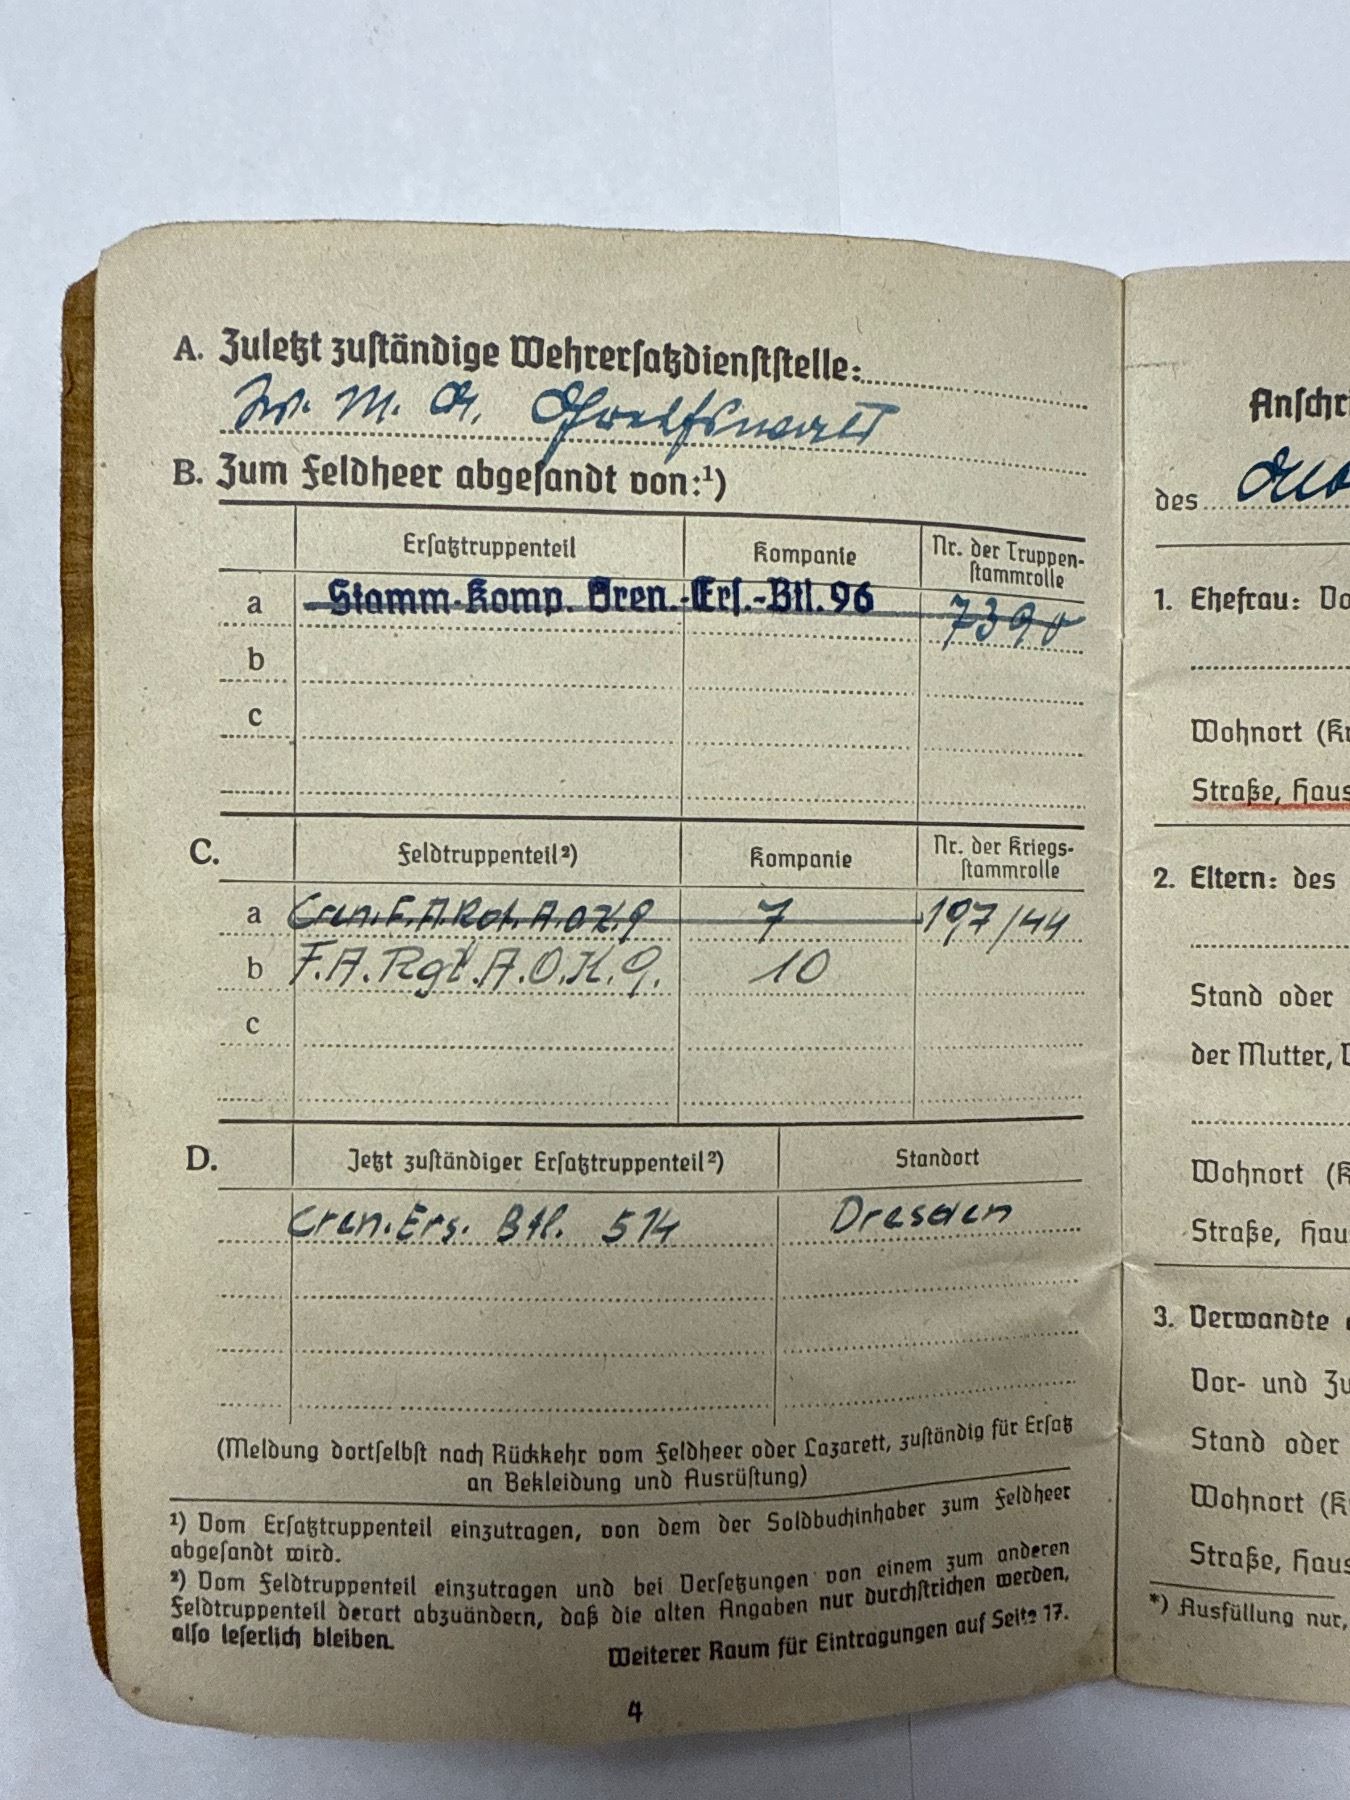 A. Zuletzt zuständige Wehrersatzdienststelle:
W. M. A. Greifswald
B. Zum Feldheer abgesandt von:¹)
Ersatztruppenteil Kompanie Nr. der Truppen-
stammrolle
a Stamm-Komp. Gren.-Ers.-Btl. 96 7390
b
c
C. Feldtruppenteil²) Kompanie Nr. der Kriegs-
stammrolle
a Gren. F.A.Rgt. A.O.K. 9 7 197/44
b F.A. Rgt. A.O.K. 9. 10
c
D. Jetzt zuständiger Ersatztruppenteil²) Standort
Gren. Ers. Btl. 514 Dresden
(Meldung dortselbst nach Rückkehr vom Feldheer oder Lazarett, zuständig für Ersatz
an Bekleidung und Ausrüstung)
¹) Vom Ersatztruppenteil einzutragen, von dem der Soldbuchinhaber zum Feldheer
abgesandt wird.
²) Vom Feldtruppenteil einzutragen und bei Versetzungen von einem zum anderen
Feldtruppenteil derart abzuändern, daß die alten Angaben nur durchstrichen werden,
also leserlich bleiben.
Weiterer Raum für Eintragungen auf Seite 17.
4
Anschri
des
1. Ehefrau: Vo
Wohnort (Kr
Straße, Haus
2. Eltern: des
Stand oder
der Mutter, V
Wohnort (K
Straße, Hau
3. Verwandte
Vor- und Zu
Stand oder
Wohnort (K
Straße, Haus
*) Ausfüllung nur,